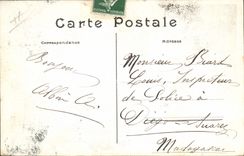 Carte Postale
Correspondance
Adresse
Bonjour
Monsieur
Louis, Inspecteur
de Police à
Diégo-Suarez
Madagascar